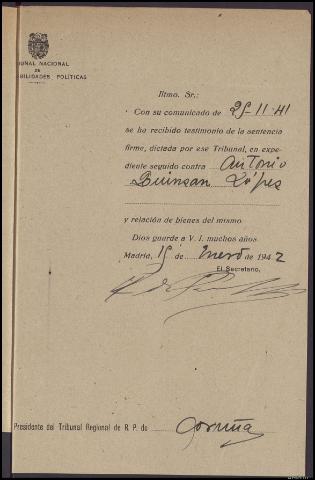 UNAL NACIONAL
DE
BILIDADES POLÍTICAS
Iltmo. Sr.:
Con su comunicado de 25-11-41
se ha recibido testimonio de la sentencia
firme, dictada por ese Tribunal, en expe-
diente seguido contra Antonio
López
y relación de bienes del mismo
Dios guarde a V. I. muchos años
Madrid, 15 de Enero de 1942
El Secretario,
Presidente del Tribunal Regional de R. P. de Coruña